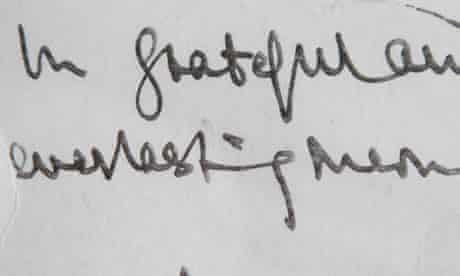 In grateful an
everlasting mem